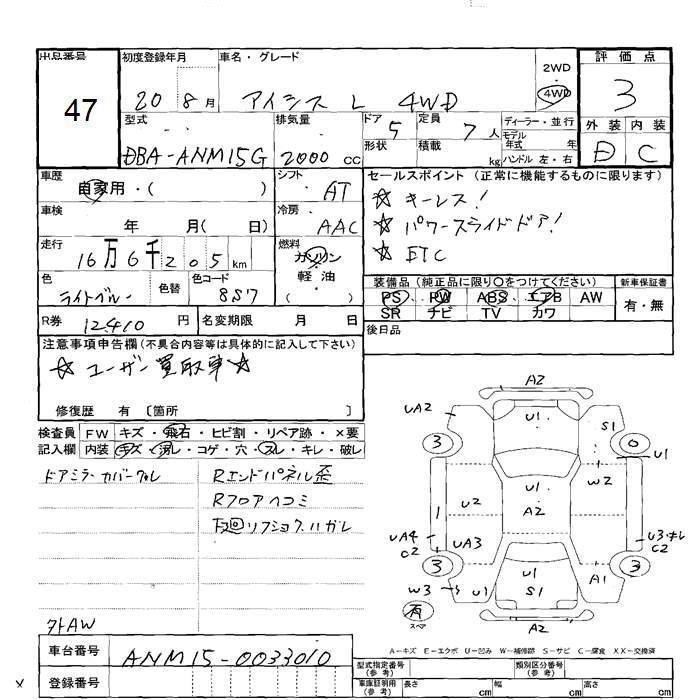 出品番号 初度登録年月 車名・グレード 評価点
47 20 8月 アイシス L 4WD 2WD 4WD 3
型式 排気量 ドア 5 定員 7人 ディーラー・並行 外装 内装
DBA-ANM15G 2000cc 形状 積載 kg モデル年式 年 ハンドル 左・右 D C
車歴 自家用・( ) シフト AT セールスポイント (正常に機能するものに限ります)
☆ キーレス!
車検 年 月( 日) 冷房 AAC ☆ パワースライドドア!
走行 16万6千205km 燃料 ガソリン 軽油 ( ) ☆ ETC
色 ライトブルー 色替 色コード 8S7 装備品 (純正品に限り○をつけてください) 新車保証書
PS PW ABS エアB AW 有・無
SR チビ TV カワ
R券 12410円 名変期限 月 日 後日品
注意事項申告欄 (不具合内容等は具体的に記入して下さい)
☆ ユーザー買取車 ☆
修復歴 有 〔箇所 〕
検査員 FW キズ・飛石・ヒビ割・リペア跡・×要
記入欄 内装 キズ・汚レ・コゲ・穴・スレ・キレ・破レ
ドアミラーカバーワレ Rエンドパネル歪
Rフロアヘコミ
下廻リフショクハガレ
外AW
A2
UA2 U1 S1
3 0
U1
W2
U2 U1
A2
UA4 C2 UA3 U3・キレ C2
3 3
W3 U1 U1 S1 A1
有 スペア A2
A-キズ E-エクボ U-凹み W-補修跡 S-サビ C-腐食 XX-交換済
車台番号 ANM15-0033010 型式指定番号(参考) 類別区分番号(参考)
x 登録番号 車庫証明用(参考) 長さ cm 幅 cm 高さ cm